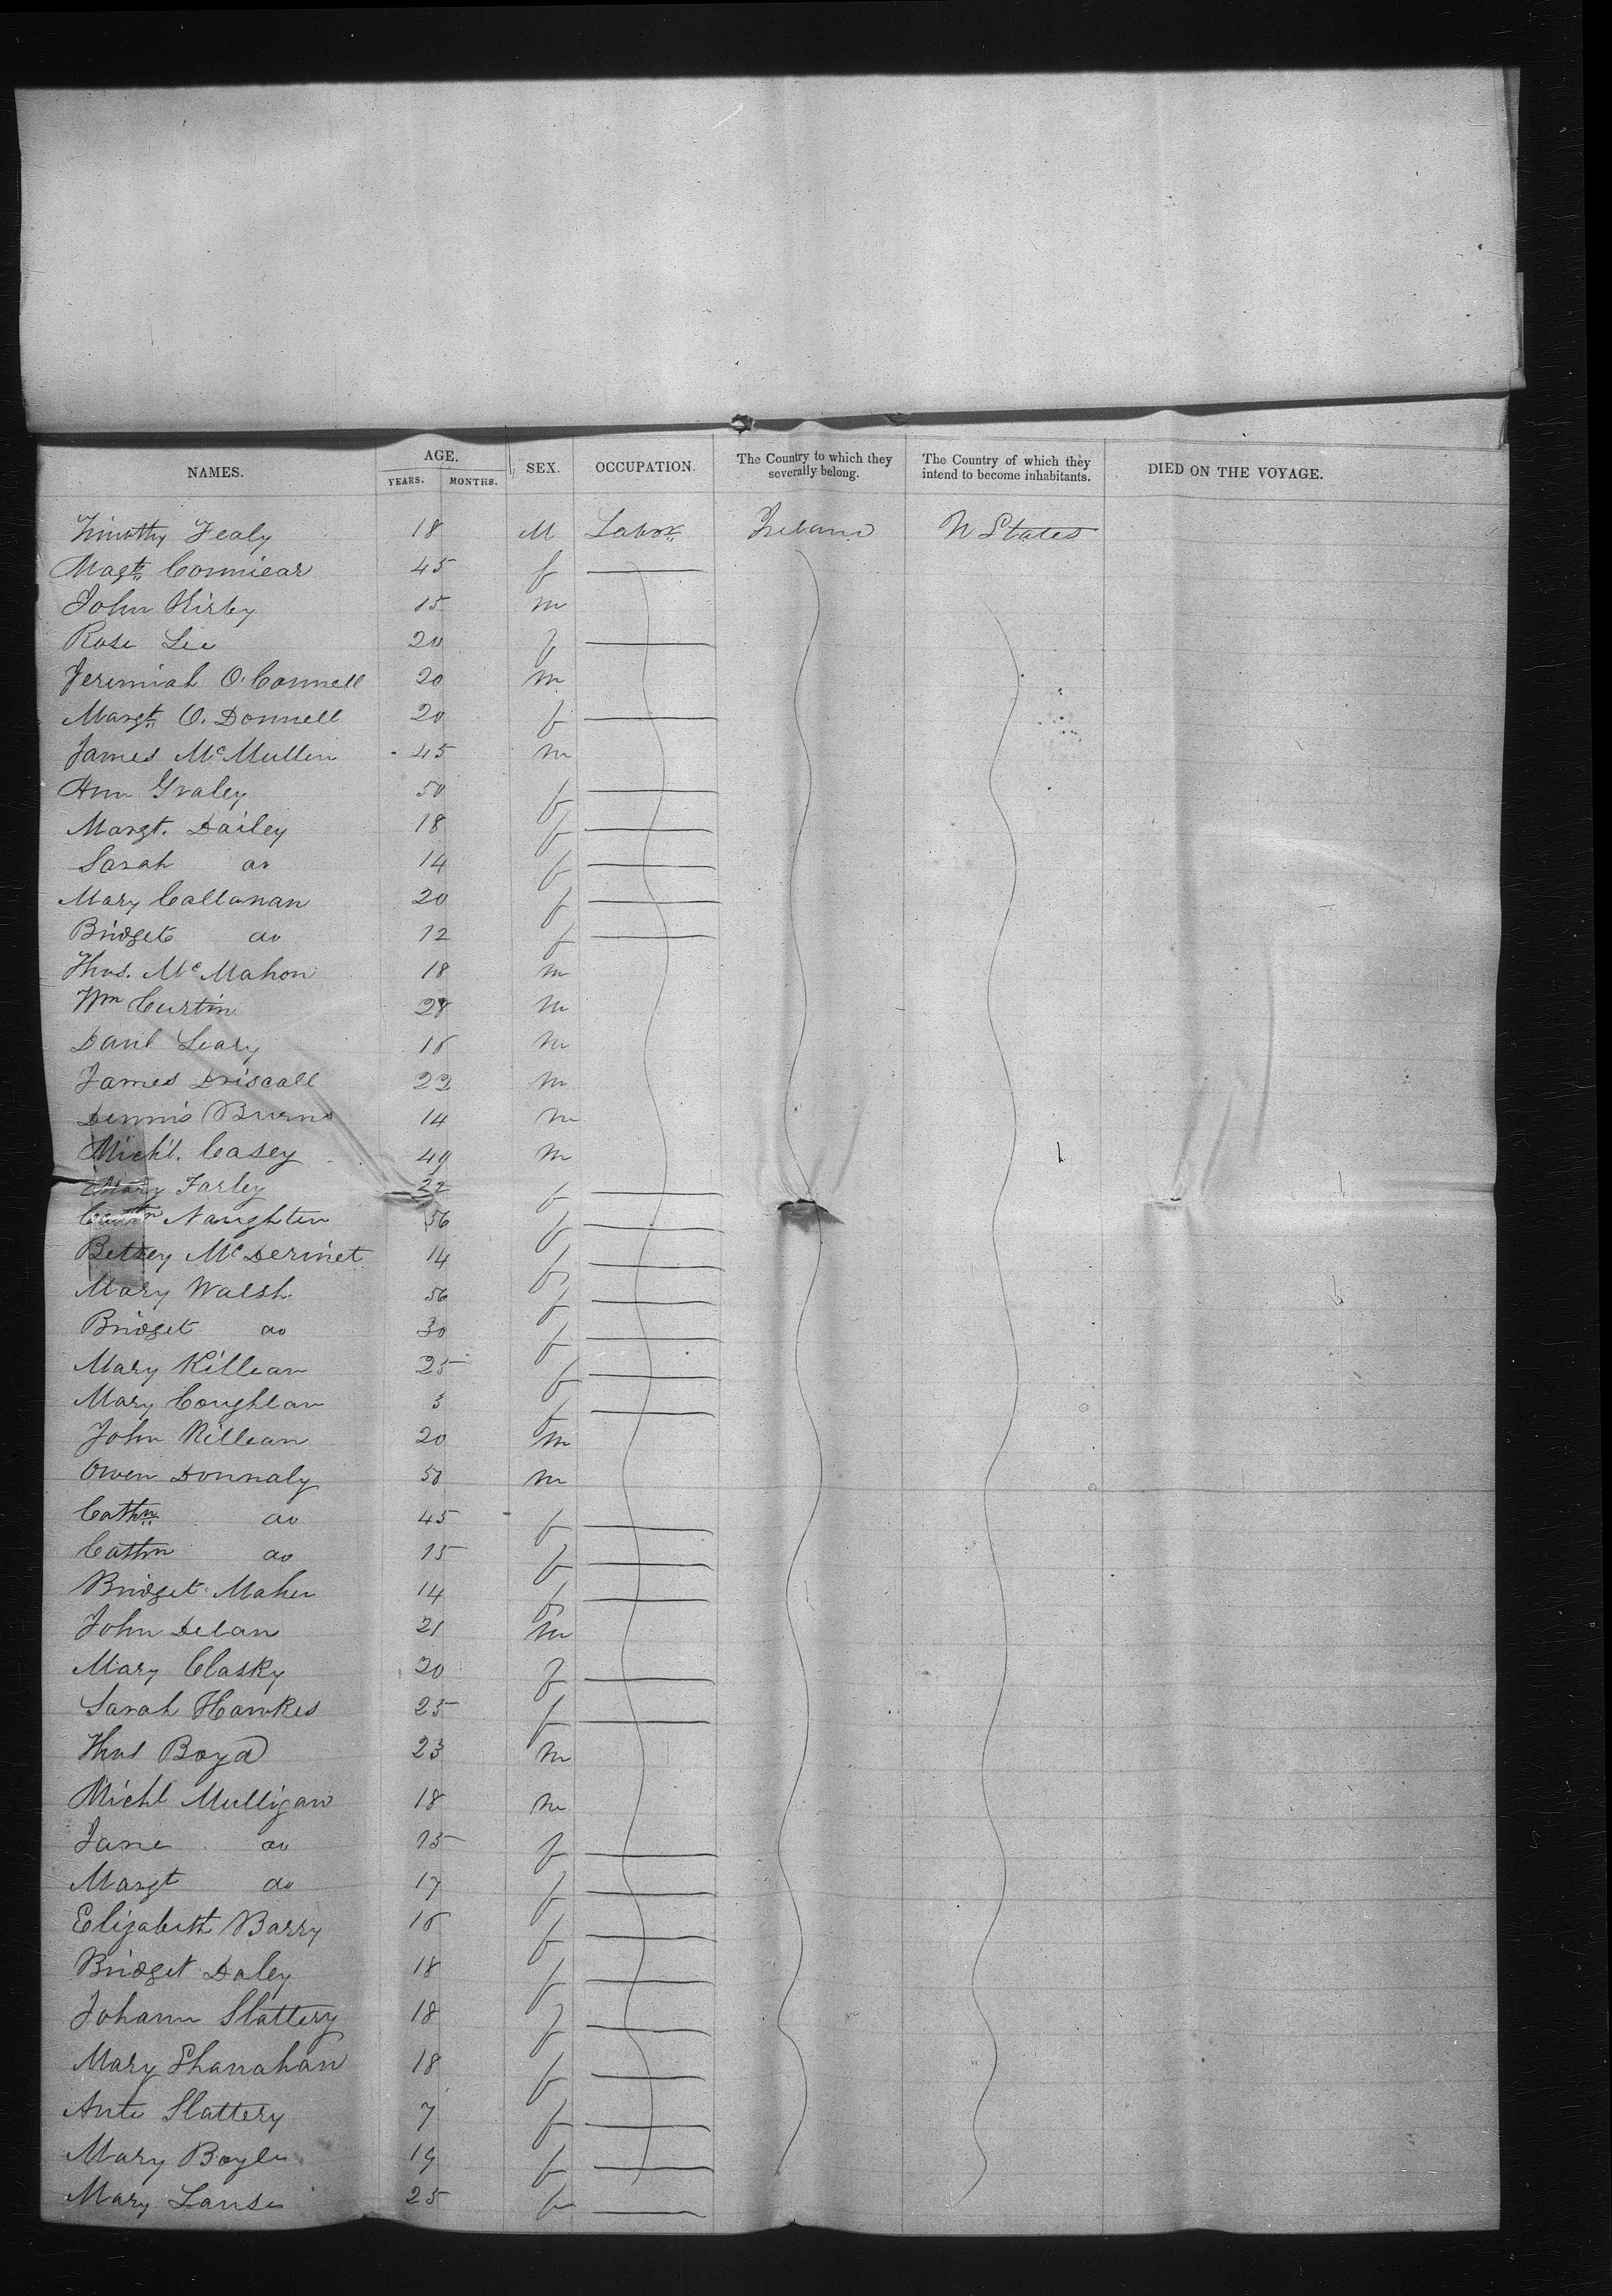 NAMES. AGE. YEARS. MONTHS. SEX. OCCUPATION. The Country to which they severally belong. The Country of which they intend to become inhabitants. DIED ON THE VOYAGE.
Timothy Fealy 18 M Labor Ireland U States
Magt Conniear 45 f
John Kirby 15 m
Rose Lee 20 f
Jeremiah O.Connell 20 m
Margt O. Donnell 20 f
James McMullen 45 m
Ann Graley 50 f
Margt. Dailey 18 f
Sarah do 14 f
Mary Callanan 20 f
Bridget do 12 f
Thos. McMahon 18 m
Wm Curtin 28 m
Danl Leary 16 m
James Driscall 22 m
Dennis Burns 14 m
Michl. Casey 40 m
Mary Farley 22 f
Cathn Naughten 56 f
Betsey McDermet 14 f
Mary Walsh 56 f
Bridget do 30 f
Mary Killean 25 f
Mary Coughlan 3 f
John Killean 20 m
Owen Donnaly 50 m
Cathn do 45 f
Cathn do 15 f
Bridget Maher 14 f
John Delan 21 m
Mary Clasky 20 f
Sarah Hawkes 25 f
Thos Boyd 23 m
Michl Mulligan 18 m
Jane do 15 f
Margt do 17 f
Elizabeth Barry 16 f
Bridget Daley 18 f
Johann Slattery 18 f
Mary Shanahan 18 f
Slattery 7 f
Mary Boyle 19 f
Mary 25 f